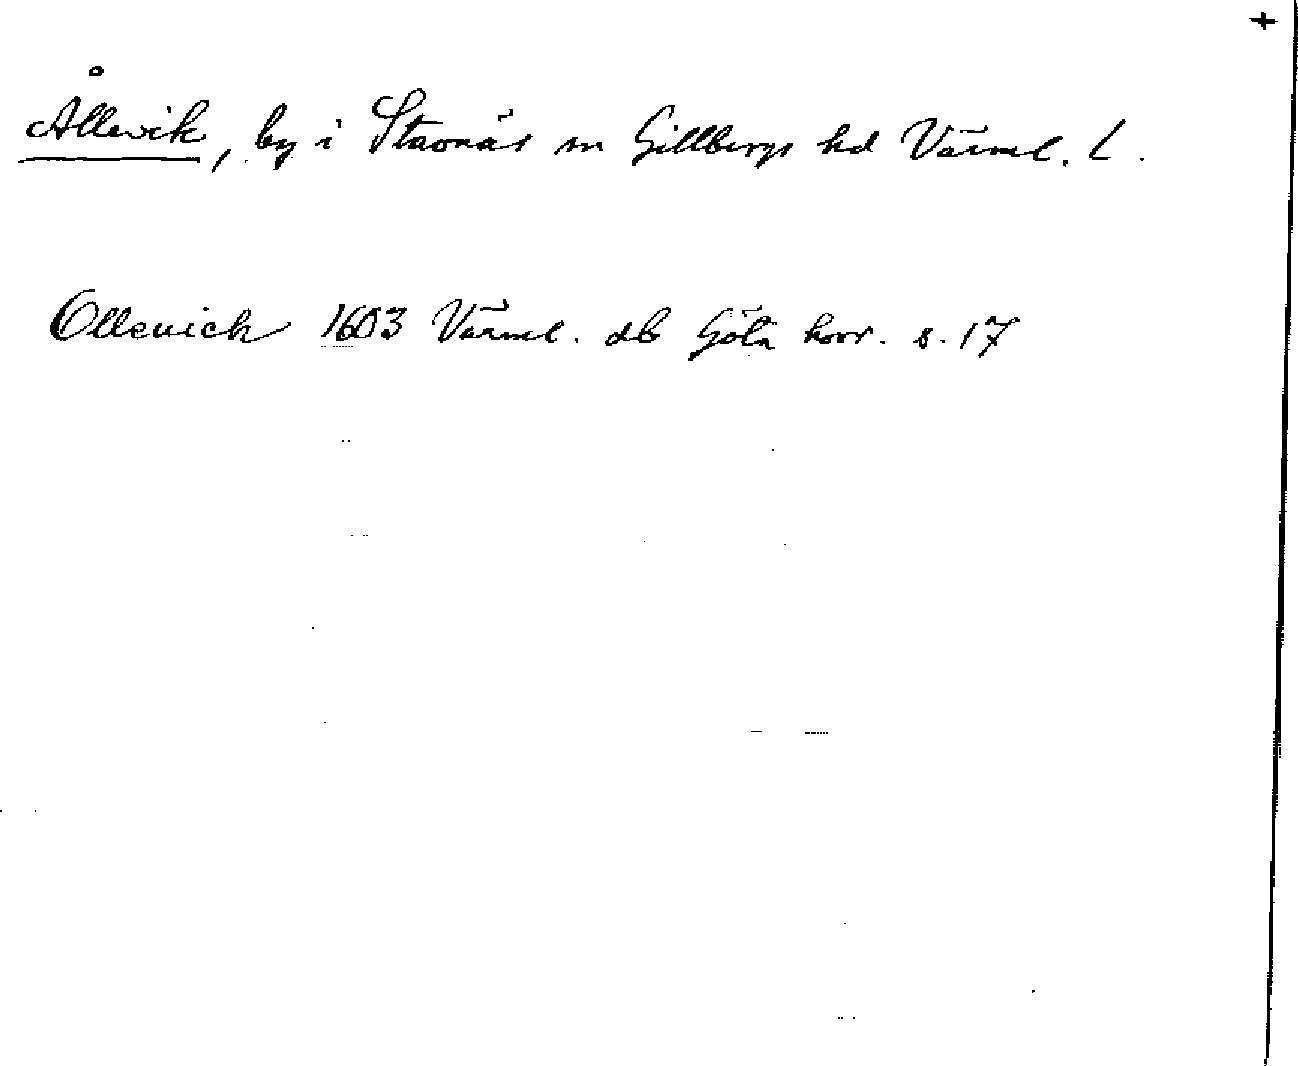 +
Ållevik, by i Stavnäs sn Gillbergs hd Värml. L.
Ollevich 1603 Värml. db Göta hovr. s. 17